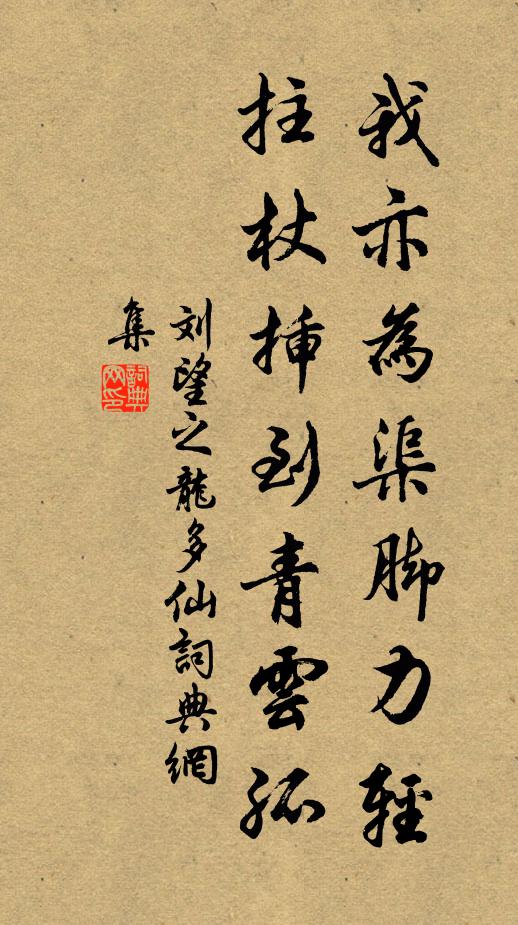 我亦為渠脚力輕
拄杖挿到青雲孤
刘望之龍多仙詞典網
集
詞典网印